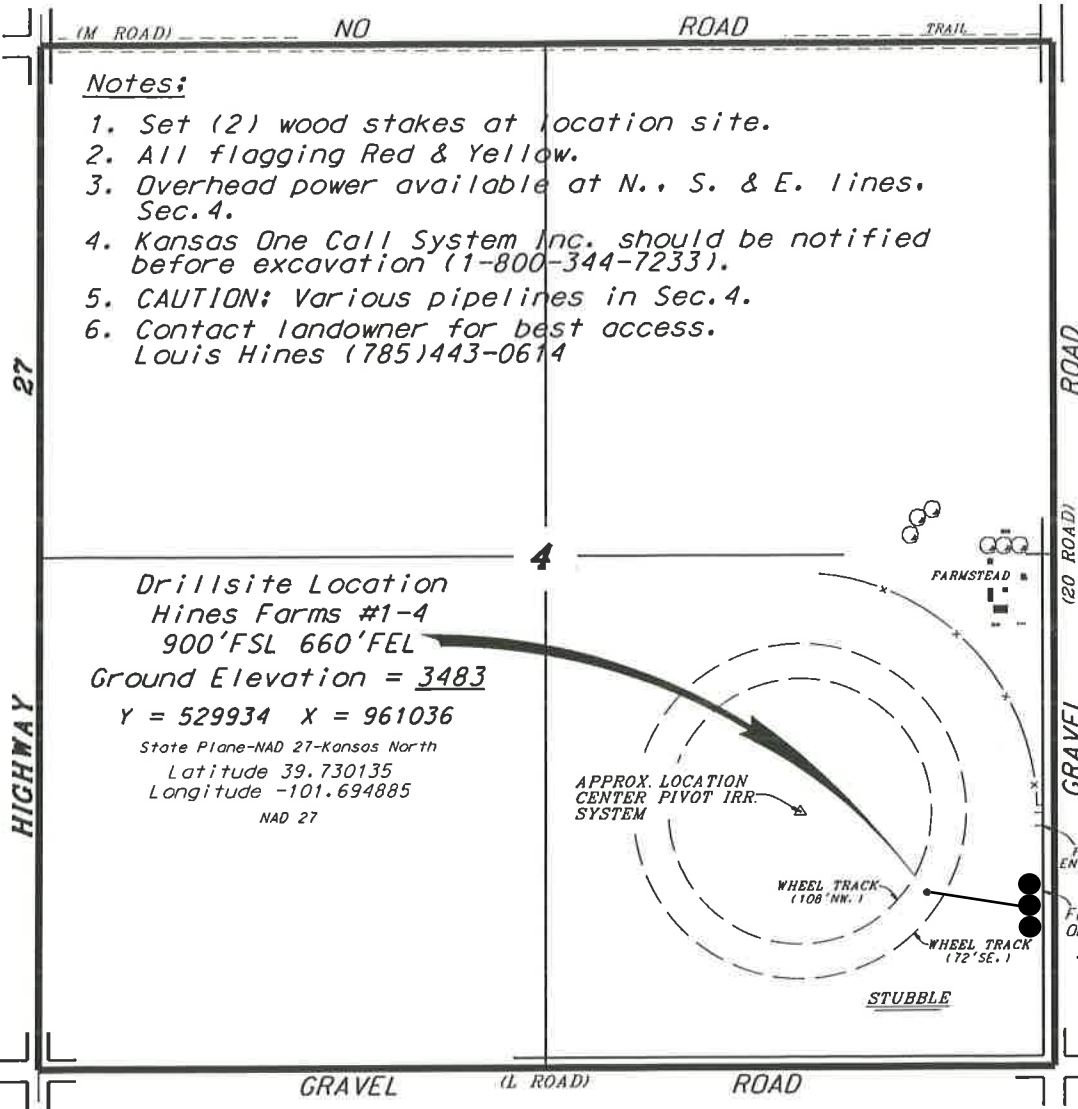 (M ROAD) NO ROAD TRAIL
Notes:
1. Set (2) wood stakes at location site.
2. All flagging Red & Yellow.
3. Overhead power available at N., S. & E. lines,
Sec. 4.
4. Kansas One Call System Inc. should be notified
before excavation (1-800-344-7233).
5. CAUTION: Various pipelines in Sec. 4.
6. Contact landowner for best access.
Louis Hines (785)443-0614
27
HIGHWAY
ROAD
(20 ROAD)
GRAVEL
4
FARMSTEAD
Drillsite Location
Hines Farms #1-4
900'FSL 660'FEL
Ground Elevation = 3483
Y = 529934 X = 961036
State Plane-NAD 27-Kansas North
Latitude 39.730135
Longitude -101.694885
NAD 27
APPROX. LOCATION
CENTER PIVOT IRR.
SYSTEM
WHEEL TRACK
(108'NW.)
WHEEL TRACK
(72'SE.)
STUBBLE
GRAVEL (L ROAD) ROAD